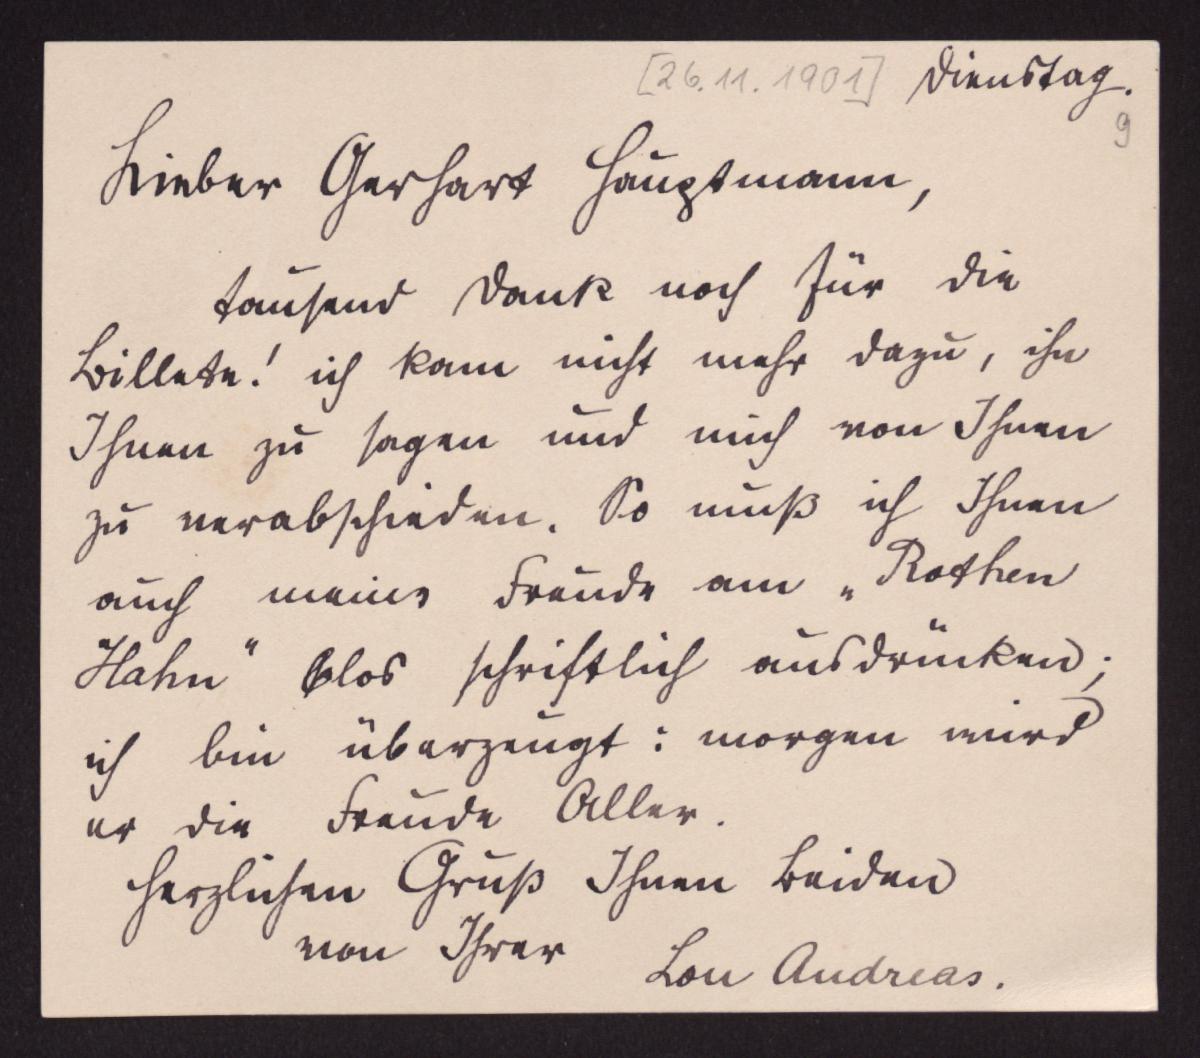 [26.11.1901] Dienstag.
9
Lieber Gerhart Hauptmann,
tausend Dank noch für die
Billete! ich kam nicht mehr dazu, ihn
Ihnen zu sagen und mich von Ihnen
zu verabschieden. So muß ich Ihnen
auch meine Freude am „Rothen
Hahn" blos schriftlich ausdrücken;
ich bin überzeugt: morgen wird
er die Freude Aller.
Herzlichen Gruß Ihnen Beiden
von Ihrer Lou Andreas.